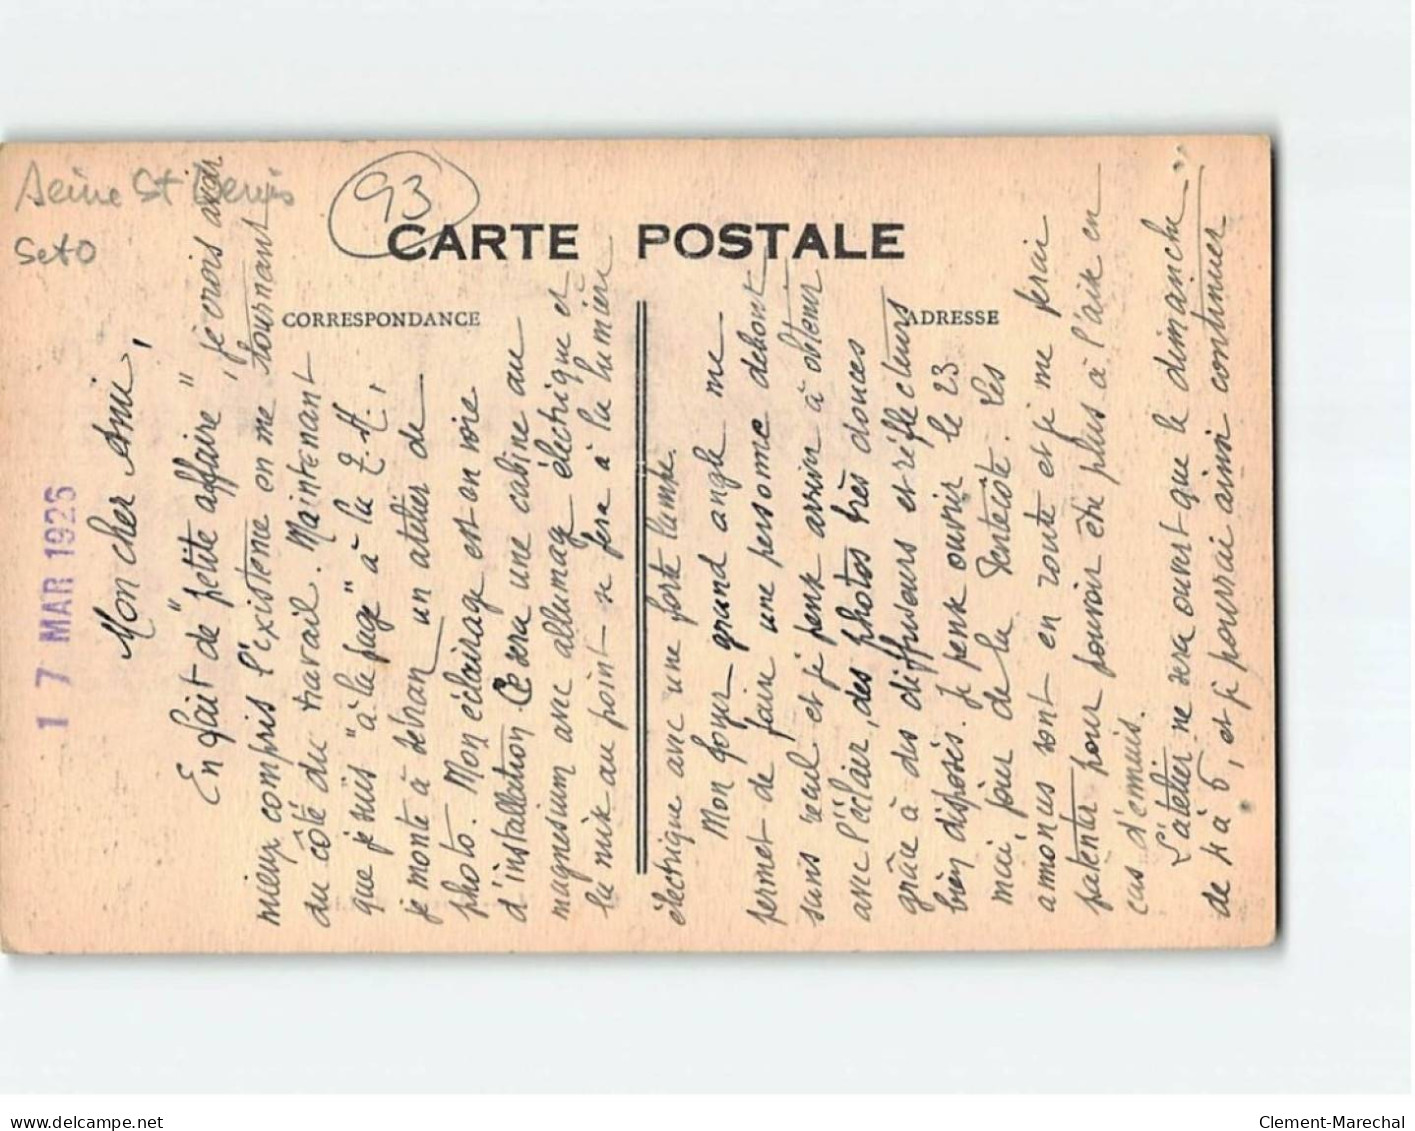 Seine St Denis
Seto
93
CARTE POSTALE
CORRESPONDANCE
ADRESSE
17 MAR 1926
Mon cher Ami,
En fait de "petite affaire", je crois avoir
mieux compris l'existence en me tournant
du côté du travail. Maintenant
que je suis "à la page" à la
je monte à Sevran un atelier de
photo. Mon éclairage est en voie
d'installation. Ce sera une cabine au
magnesium avec allumage électrique et
la mise au point se fera à la lumière
électrique avec une forte lampe.
Mon foyer grand angle me
permet de faire une personne debout
sans recul et je pense arriver à obtenir
avec l'éclair, des photos très douces
grâce à des diffuseurs et réflecteurs
bien disposés. Je pense ouvrir le 23
mai, jour de la Pentecôte. Les
annonces sont en route et je me ferai
patenter pour pouvoir être plus à l'aise en
cas d'ennuis.
L'atelier ne sera ouvert que le dimanche
de 4 à 6, et je pourrai ainsi continuer
www.delcampe.net
Clement-Marechal